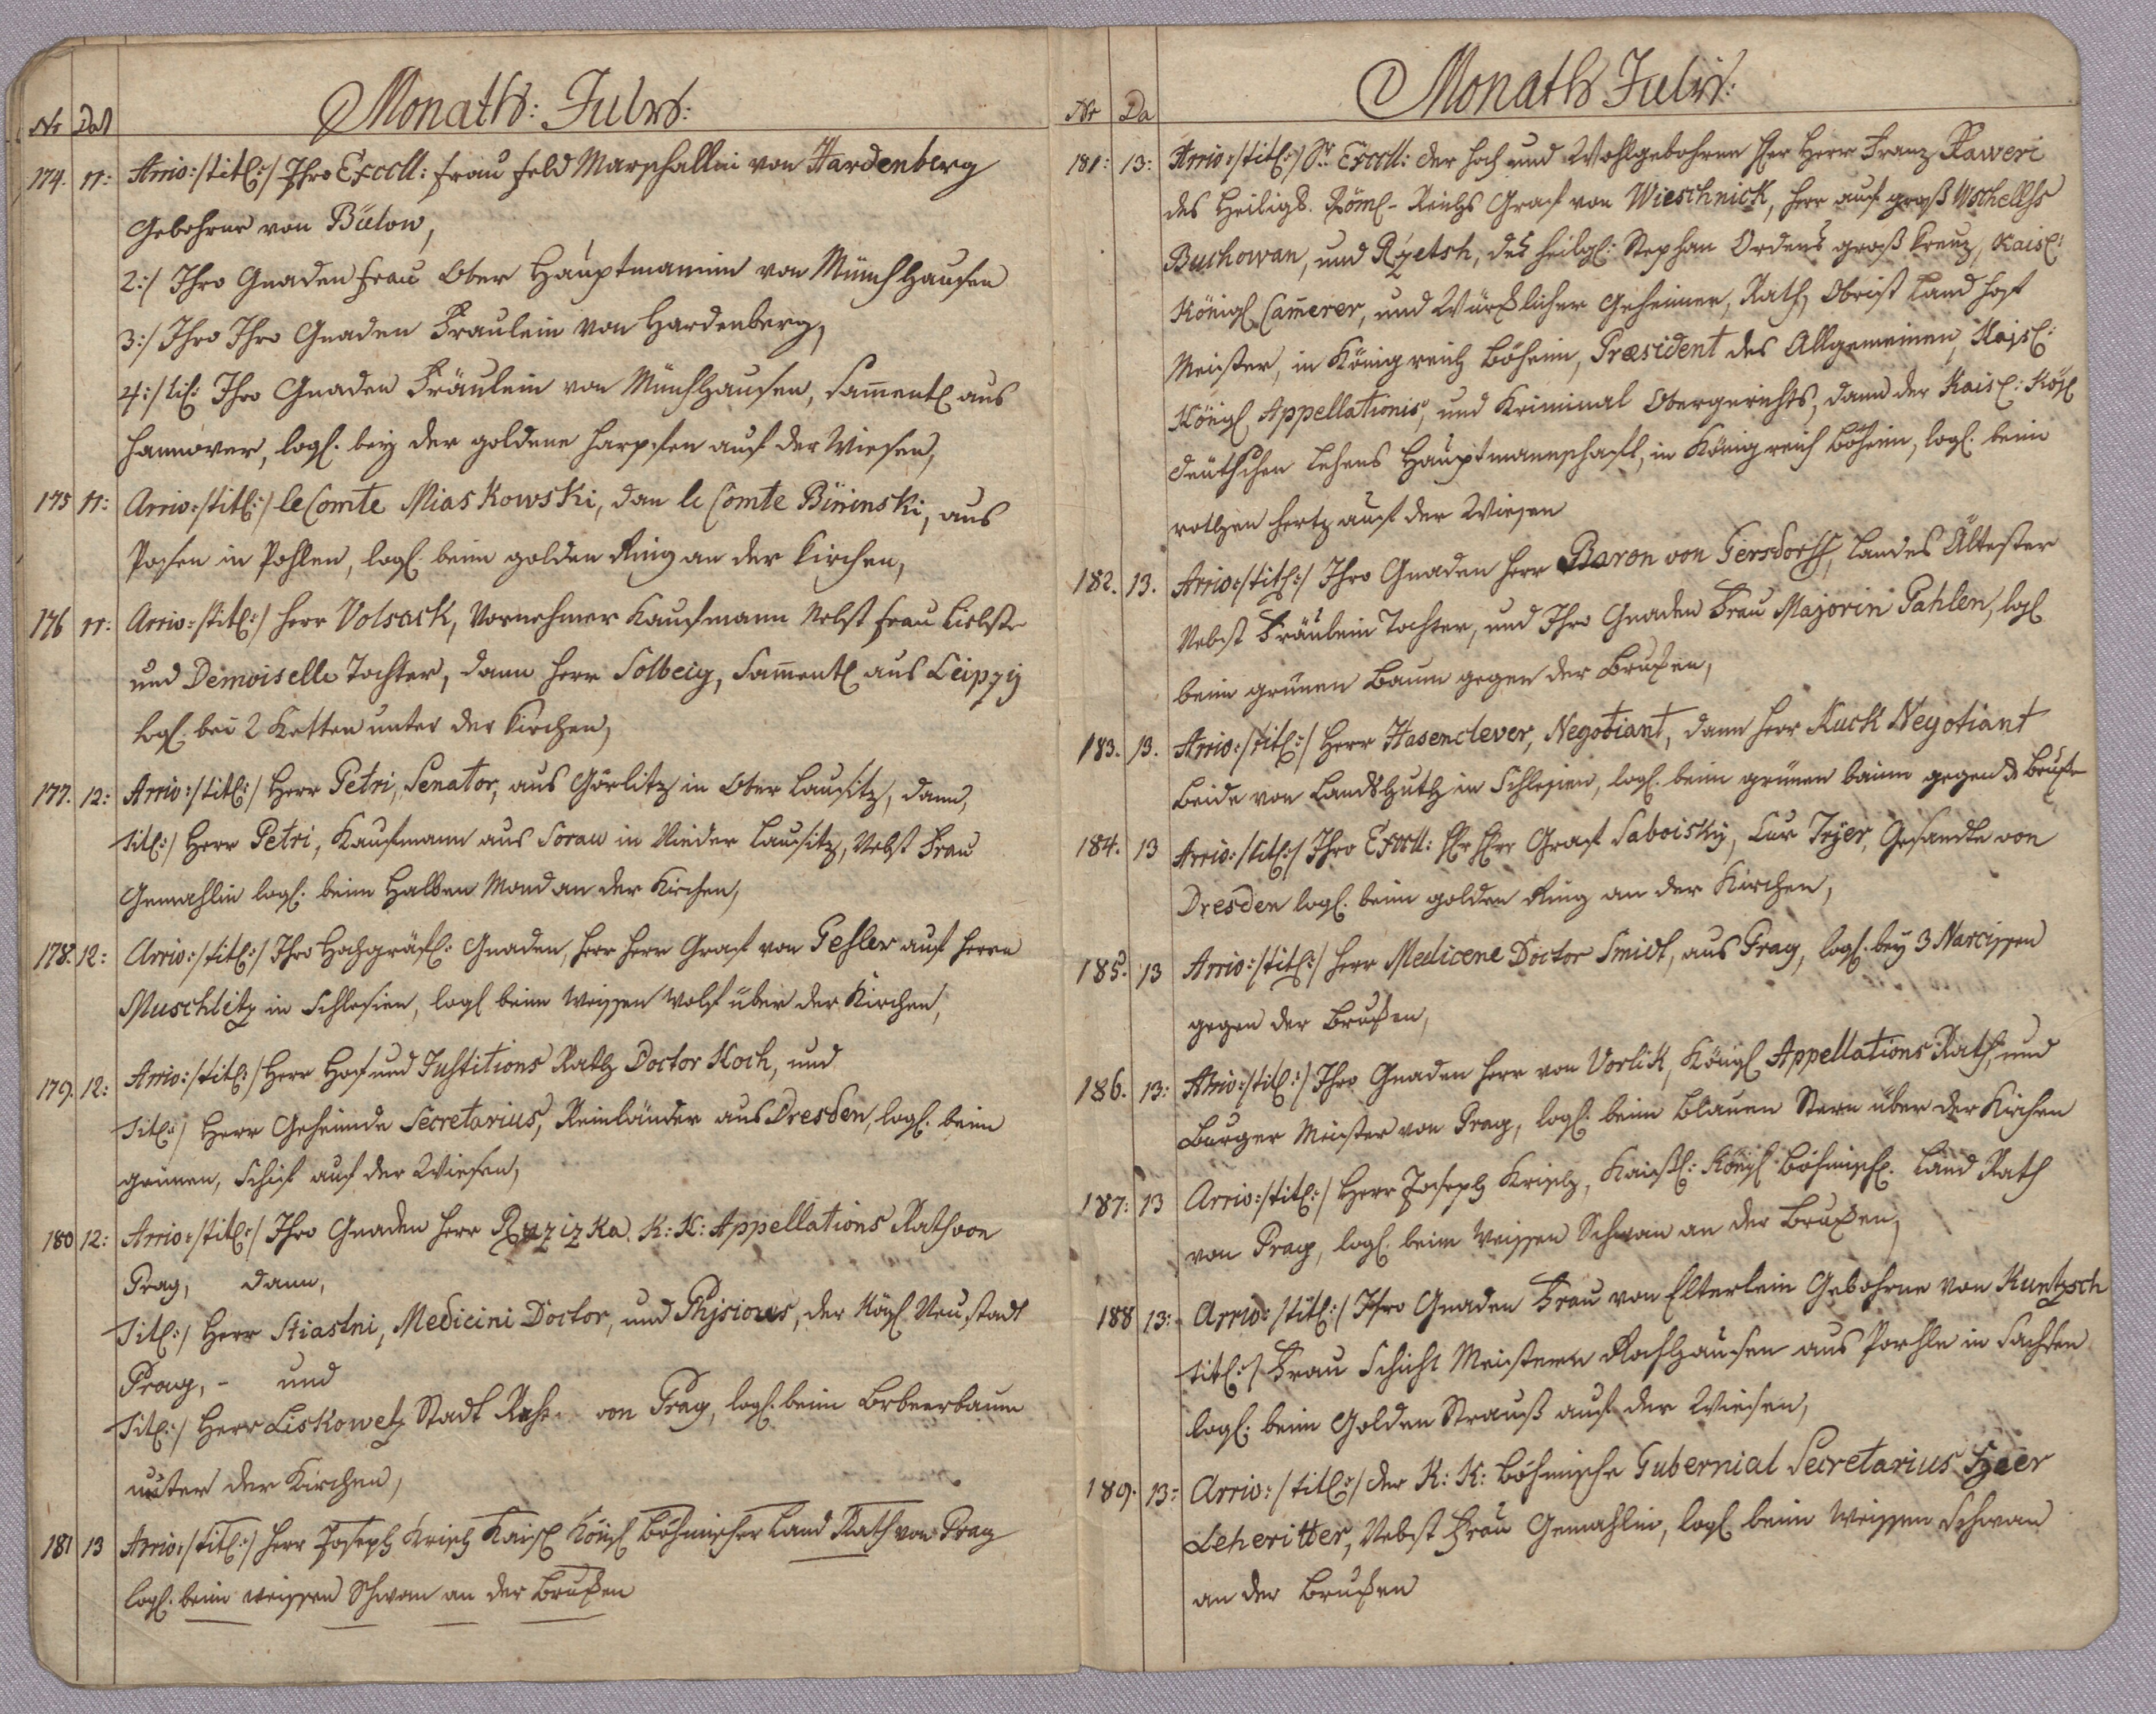 Monaths: Julÿ:
Nr Dat
174. 11: Arriv:/titl:/ Ihro Excell: Frau Feld Marschallin von Hardenberg
Gebohrne von Bülow,
2:/ Ihro Gnaden Frau Ober Hauptmannin von Münchhausen
3:/ Ihro Ihro Gnaden Fraulein von Hardenberg,
4:/ tit: Ihro Gnaden Fräulein von Münchhausen, samentl aus
Hannover, logl. bey der goldene Harpfen auf der Wiesen,
175 11: Arriv:/titl:/ le Comte Miaskowski, dan le Comte Bininski, aus
Posen in Pohlen, logl. beim golden Ring an der Kirchen,
176 11: Arriv:/titl:/ Herr Volsack, Vornehmer Kaufmann Nebst Frau Liebste
und Demoiselle Tochter, dann Herr Solbeig, samentl aus Leipzig
logl. bei 2 Ketten unter der Kirchen,
177. 12: Arriv:/titl:/ Herr Petri, Senator, aus Görlitz in Ober Lausitz, dann,
Titl:/ Herr Petri, Kaufmann aus Sorau in Nieder Lausitz, Nebst Frau
Gemahlin logl. beim Halben Mond an der Kirchen,
178. 12: Arriv:/titl:/ Ihro Hochgräfl: Gnaden, Herr Herr Graf von Geßler auf Herrn
Muschlitz in Schlesien, logl beim Weissen Wolf über der Kirchen,
179. 12: Arriv:/titl:/ Herr Hof und Justitions Rath Doctor Koch, und
Titl:/ Herr Geheimde Secretarius, Reinländer aus Dresden, logl. beim
grünen, Schif auf der Wiesen,
180 12: Arriv:/titl:/ Ihro Gnaden Herr Ruzizka K: K: Appellations Rath von
Prag, dann,
Titl:/ Herr Stiastni, Medicini Doctor, und Phisicus, der Kögl Neustadt
Prag, - und
Titl:/ Herr Liskowetz Stadt Rath von Prag, logl. beim Lorbeerbaum
unter der Kirchen,
181 13 Arriv:/titl:/ Herr Joseph Krisch Kaisl Königl Böhmischer Land Rath von Prag
logl. beim weissen Schwan an der Brukken
Monaths Julÿ:
Nr Da
181: 13: Arriv:/titl:/ Sr Excell: der Hoch und Wohlgebohrne Herr Herr Franz Xaweri
des Heiligs. Röml- Reichs Graf von Wieschnick, Herr auf groß
Buckowan, und Rzetsh, des heilgl: Stephan Ordens groß Kreuz, Kaisl:
Königl Camerer, und Würklicher Geheimer, Rath, Obrist Land Hof
Meister, in Königreich Böheim, Præsident des Allgemeinen, Kaisl:
Königl. Appellations, und Kriminal Obergerichts, dann der Kaisl: Kögl
deutschen Lehens Hauptmannschaft, in Königreich Böheim, logl. beim
rothen Hertz auf der Wiesen
182. 13. Arriv:/titl:/ Ihro Gnaden Herr Baron von Gersdorff, Landes Ältester
Nebst Fräulein Tochter, und Ihro Gnaden Frau Majorin Pahlen, logl
beim grünen Baum gegen der Brukken,
183. 13. Arriv:/titl:/ Herr Hasenclever, Negotiant, dann Herr Kuck Negotiant
Beide von Landshuth in Schlesien, logl. beim grünen baum gegen d Brukke
184. 13 Arriv:/titl:/ Ihro Excell: Hr Herr Graf Saboisky, Cur Gesandte von
Dresden logl. beim golden Ring an der Kirchen,
185. 13 Arriv:/titl:/ Herr Medicene Doctor Smidt, aus Prag, logl. bey 3 Narcissen
gegen der Brukken,
186. 13: Arriv:/titl:/ Ihro Gnaden Herr von Vorlik, Königl Appellations Rath, und
Burger Meister von Prag, logl: beim blauen Stern über der Kirchen
187: 13 Arriv:/titl:/ Herr Joseph Krisch, Kaißl: Königl Böhmischl. Land Rath
von Prag, logl. beim Weissen Schwan an der Brukken,
188 13: Arriv:/titl:/ Ihro Gnaden Frau von Elterlein Gebohrne von Kuntzsch
titl:/ Frau Schicht Meistern Rachhausen aus in Sachsen
logl. beim Golden Strauß auf der Wiesen,
189. 13: Arriv:/titl:/ der K: K: Böhmische Gubernial Secretarius
Leheritter, Nebst Frau Gemahlin, logl beim Weissen Schwan
an der Brukken